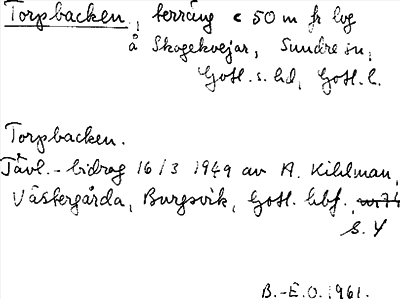 Torpbacken, terräng c 50 m fr log
å Skogekvejar, Sundre sn,
Gotl. s. hd, Gotl. l.
Torpbacken.
Tävl.-bidrag 16/3 1949 av A. Kihlman,
Västergårda, Burgsvik, Gotl. hbf.
s. 4
B.-E.O. 1961.